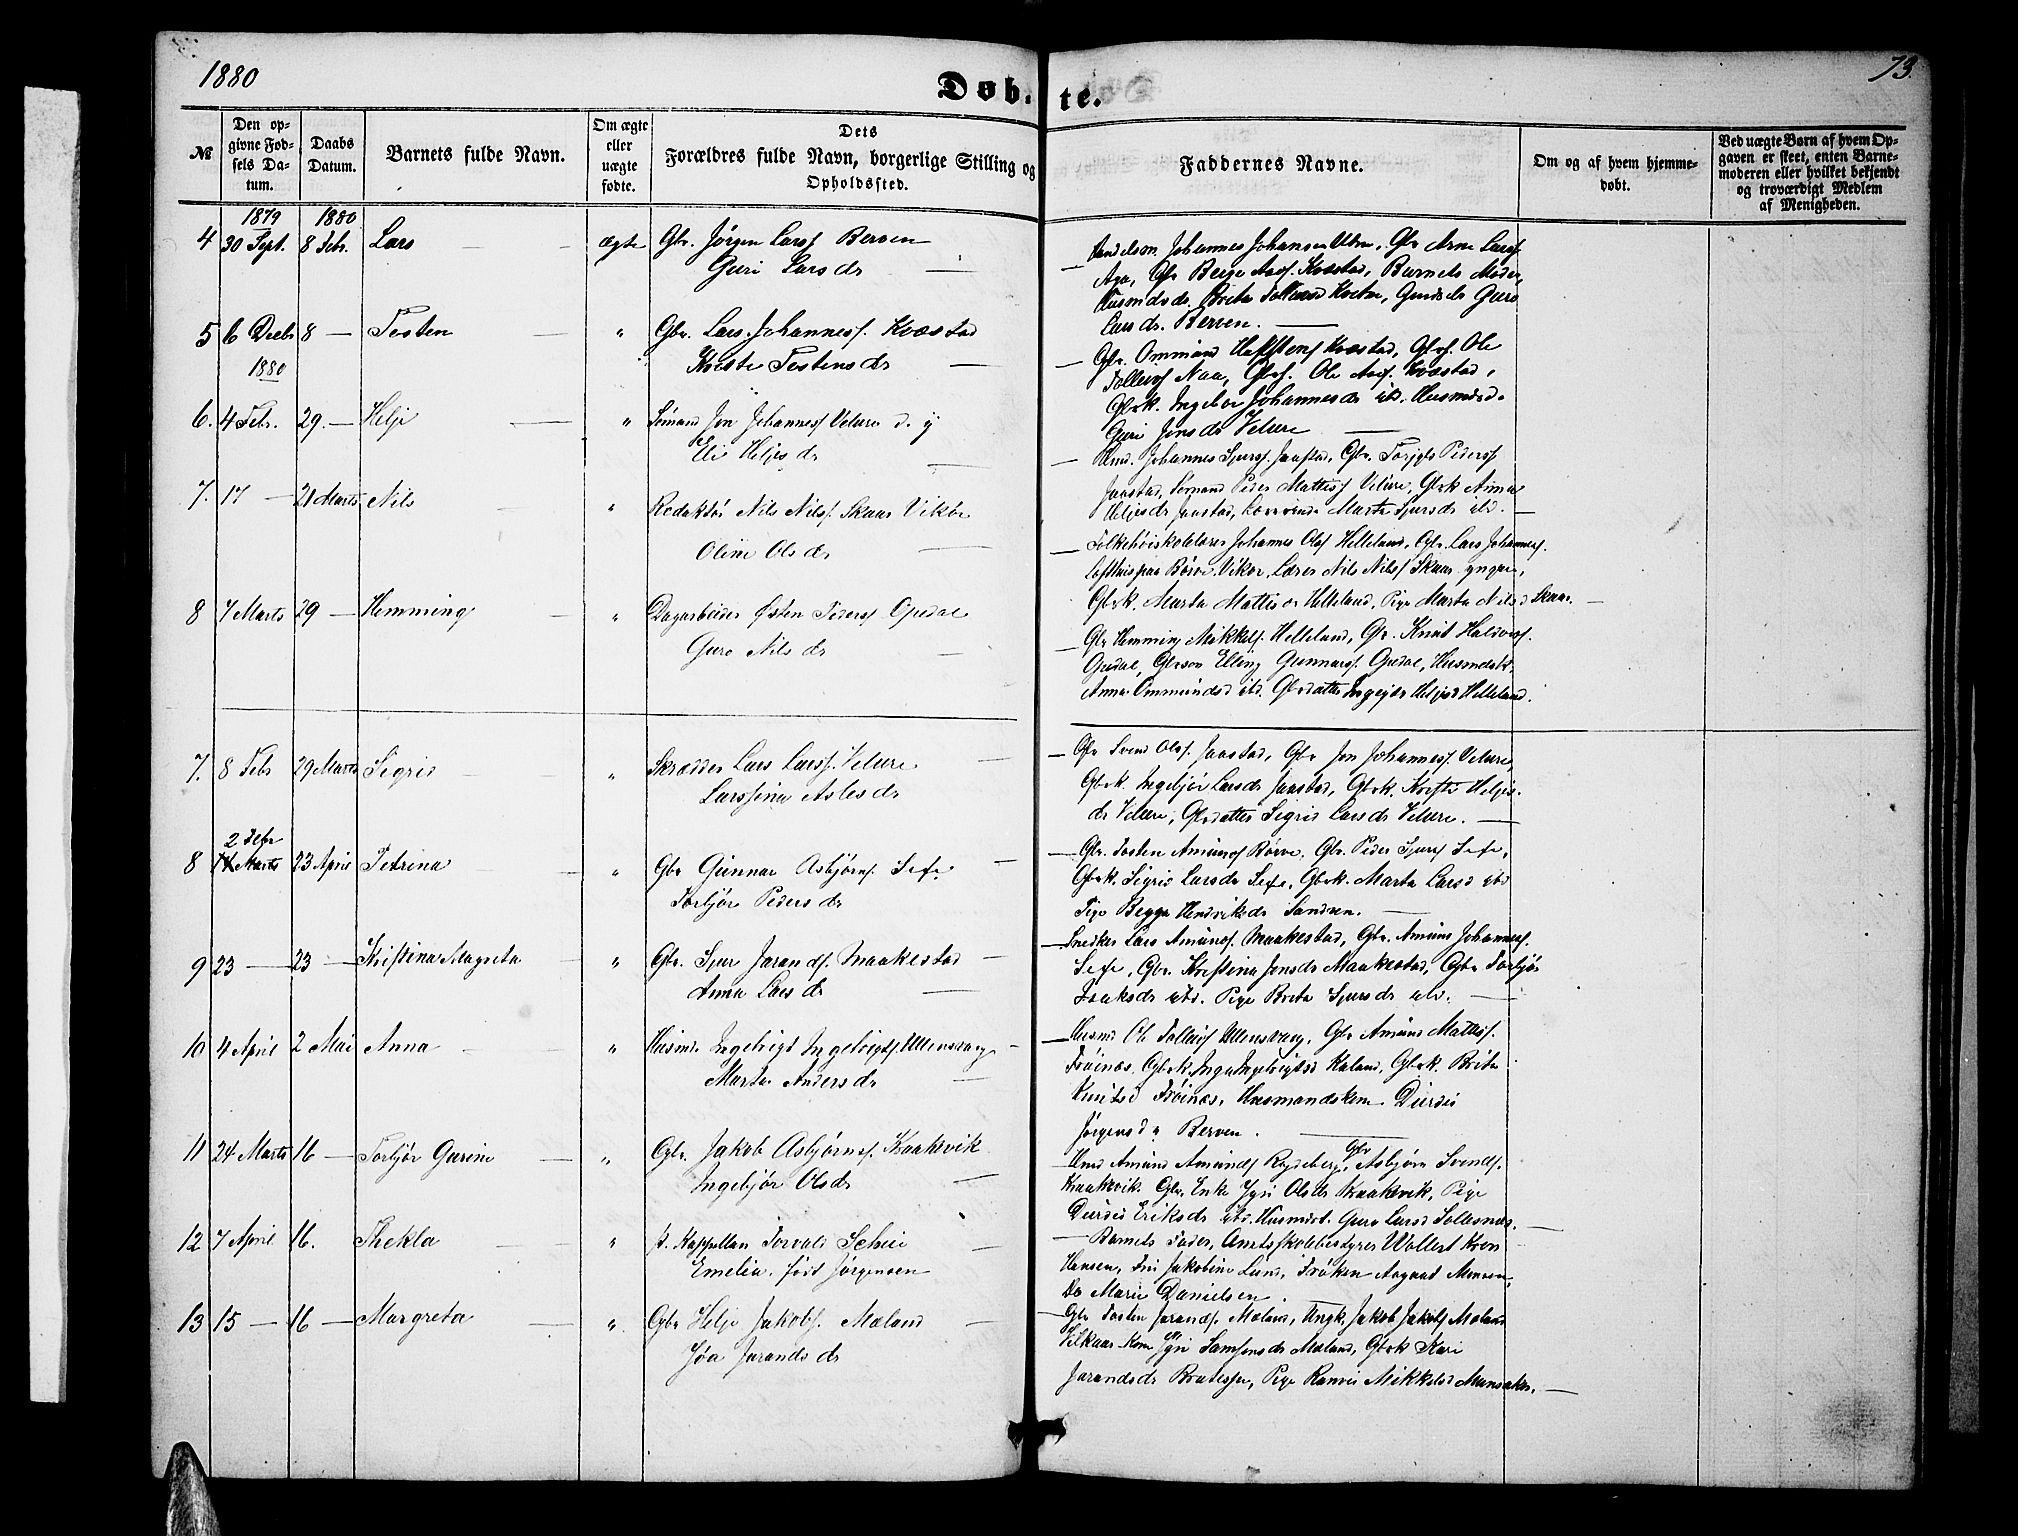 1880
Døbte.
73.
№
Den opgivne Fødsels Datum.
Daabs Datum.
Barnets fulde Navn.
Om ægte eller uægte fødte.
Dets Forældres fulde Navn, borgerlige Stilling og Opholdssted.
Faddernes Navne.
Om og af hvem hjemmedøbt.
Ved uægte Børn af hvem Opgaven er skeet, enten Barnemoderen eller hvilket bekjendt og troværdigt Medlem af Menigheden.
1879 1880
4 30 Sept. 8 Febr. Lars — ægte Gbr. Jørgen Larss Berven
Guri Larsdr —
Johannes Johansen Utne, Gbr Arne Larss
Aga, Gbr Berge Aas. Kvæstad, Barnets Moder,
Husmdsdr. Brita Kvitne, Guro
Larsdr. Berven. —
5 6 Decbr 8 — Tosten — " Gbr. Lars Johanness. Kvæstad
Tostensdr —
Gbr. Ommund Kvæstad, Gbrs. Ole
Tolleivs Naa, Gbrs. Ole Aas. Kvæstad,
Gbrk. Ingebor Johannesdr ibd. Husmdsd.
Guri Jonsdr Velure —
1880
6. 4 Febr. 29. — Helje — " Sømand Jon Johanness Velure d. y
Eli Heljesdr —
Johannes Sjurss. Jaastad, Gbr. Torgils Pederss
Jaastad, Sømand Peder Mattiss Velure, Gbrk Anna
Heljesdr Jaastad, Marta Sjursdr ibd. —
7. 17 — 21 Marts Nils — " Redaktør Nils Nilss. Skaar Vikør
Oline Olsdr —
Folkehøiskolelærer Johannes Olss Helleland, Gbr. Lars Johanness.
Lofthus paa Børve Vikør, Lærer Nils Nilss Skaar yngre,
Gbrk. Marta Mattisdr Helleland, Pige Marta Nilsd Skaar. —
8 7 Marts 29 — Hemming — " Dagarbeider Østen Pederss Opedal
Guro Nilsdr —
Gbr Hemming Mikkels. Helleland, Gbr. Knut Haldors.
Opedal, Gbrsøn Elling Gunnars. Opedal, Husmdsk.
Anna Ommundsd ibd. Gbrdatter Ingebjør Heljesd Helleland.
7. 8 Febr 29 Marts Sigrid — " Skrædder Lars Larss. Velure —
Larssina Aslesdr
Gbr Svend Olss. Jaastad, Gbr Jon Johanness. Velure,
Gbrk. Ingebjør Larsdr Jaastad, Gbrk. Heljes-
dr Velure, Gbrdatter Sigrid Larsdr Velure. —
2 Febr
8 Marts 23 April Petrina — " Gbr Gunnar Asbjørns. Sexe —
Torbjør Pedersdr
Gbr. Tosten Amunds Børve, Gbr. Peder Sjurs Sexe,
Gbrk. Sigrid Larsdr Sexe, Gbrk. Marta Larsd ibd
Pige Begga Hendriksdr Sandven. —
9 23 — 23 — Kristina Magreta — " Gbr. Sjur Jarands. Maakestad —
Anna Larsdr —
Snedker Lars Amunds. Maakestad, Gbr. Amund Johanness.
Sexe, Gbr. Kristina Jonsdr Maakestad, Gbr Torbjør
Isaksdr ibd. Pige Brita Sjursdr ibd. —
10 4 April 2 Mai Anna — " Husmd. Engelbrigt Ingebrigts. Ullensvang —
Marta Andersdr —
Husmd Ole Tolleivs Ullensvang, Gbr Amund Mattiss.
Frøinæs, Gbrk. Inga Ingebrigtsd Kaland, Gbrk. Brita
Knutsd Frøinæs, Husmandskone Durdei
Jørgensdr Berven. —
11 24 Marts 16 — Torbjør Gurine — " Gbr. Jakob Asbjørnss. Kraakvik
Ingebjør Olsdr —
Amund Amunds Rogdeberg, Gbr Asbjørn Svends.
Kraakevik. Gbr. Enke Jgri Olsdr Kraakvik, Pige
Durdei Eriksdr ibd. Husmdsk. Guro Larsd Tollesnæs. —
12 7 April 16. Thekla — " p. Kappellan Torvald Schei —
Emelia, født Jørgensen
— Barnets Fader, Amtsskolebestyrer Wollert Kron
Hansen, Fru Jakobine Lund, Frøken Aagaat Monsen,
Do Marie Danielsen.
13 15 — 16 — Margreta — " Gbr Helje Jakobs. Mæland —
Jøa Jarandsdr
Gbr Tosten Jarands. Mæland, Ungk. Jakob Jakobs Mæland
Vilkaarskone Jgri Samsonsdr Mæland, Gbrk Kari
Jarandsdr Bratespe, Pige Ranvei Mikkelsd Munsaker. —